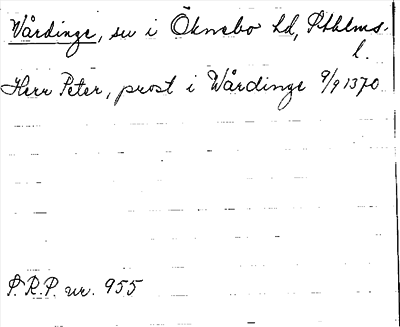 Vårdinge, sn i Öknebo hd, Sthlms.
l.
Herr Peter, prost i Wårdinge 9/9 1370
P.R.P. nr. 955